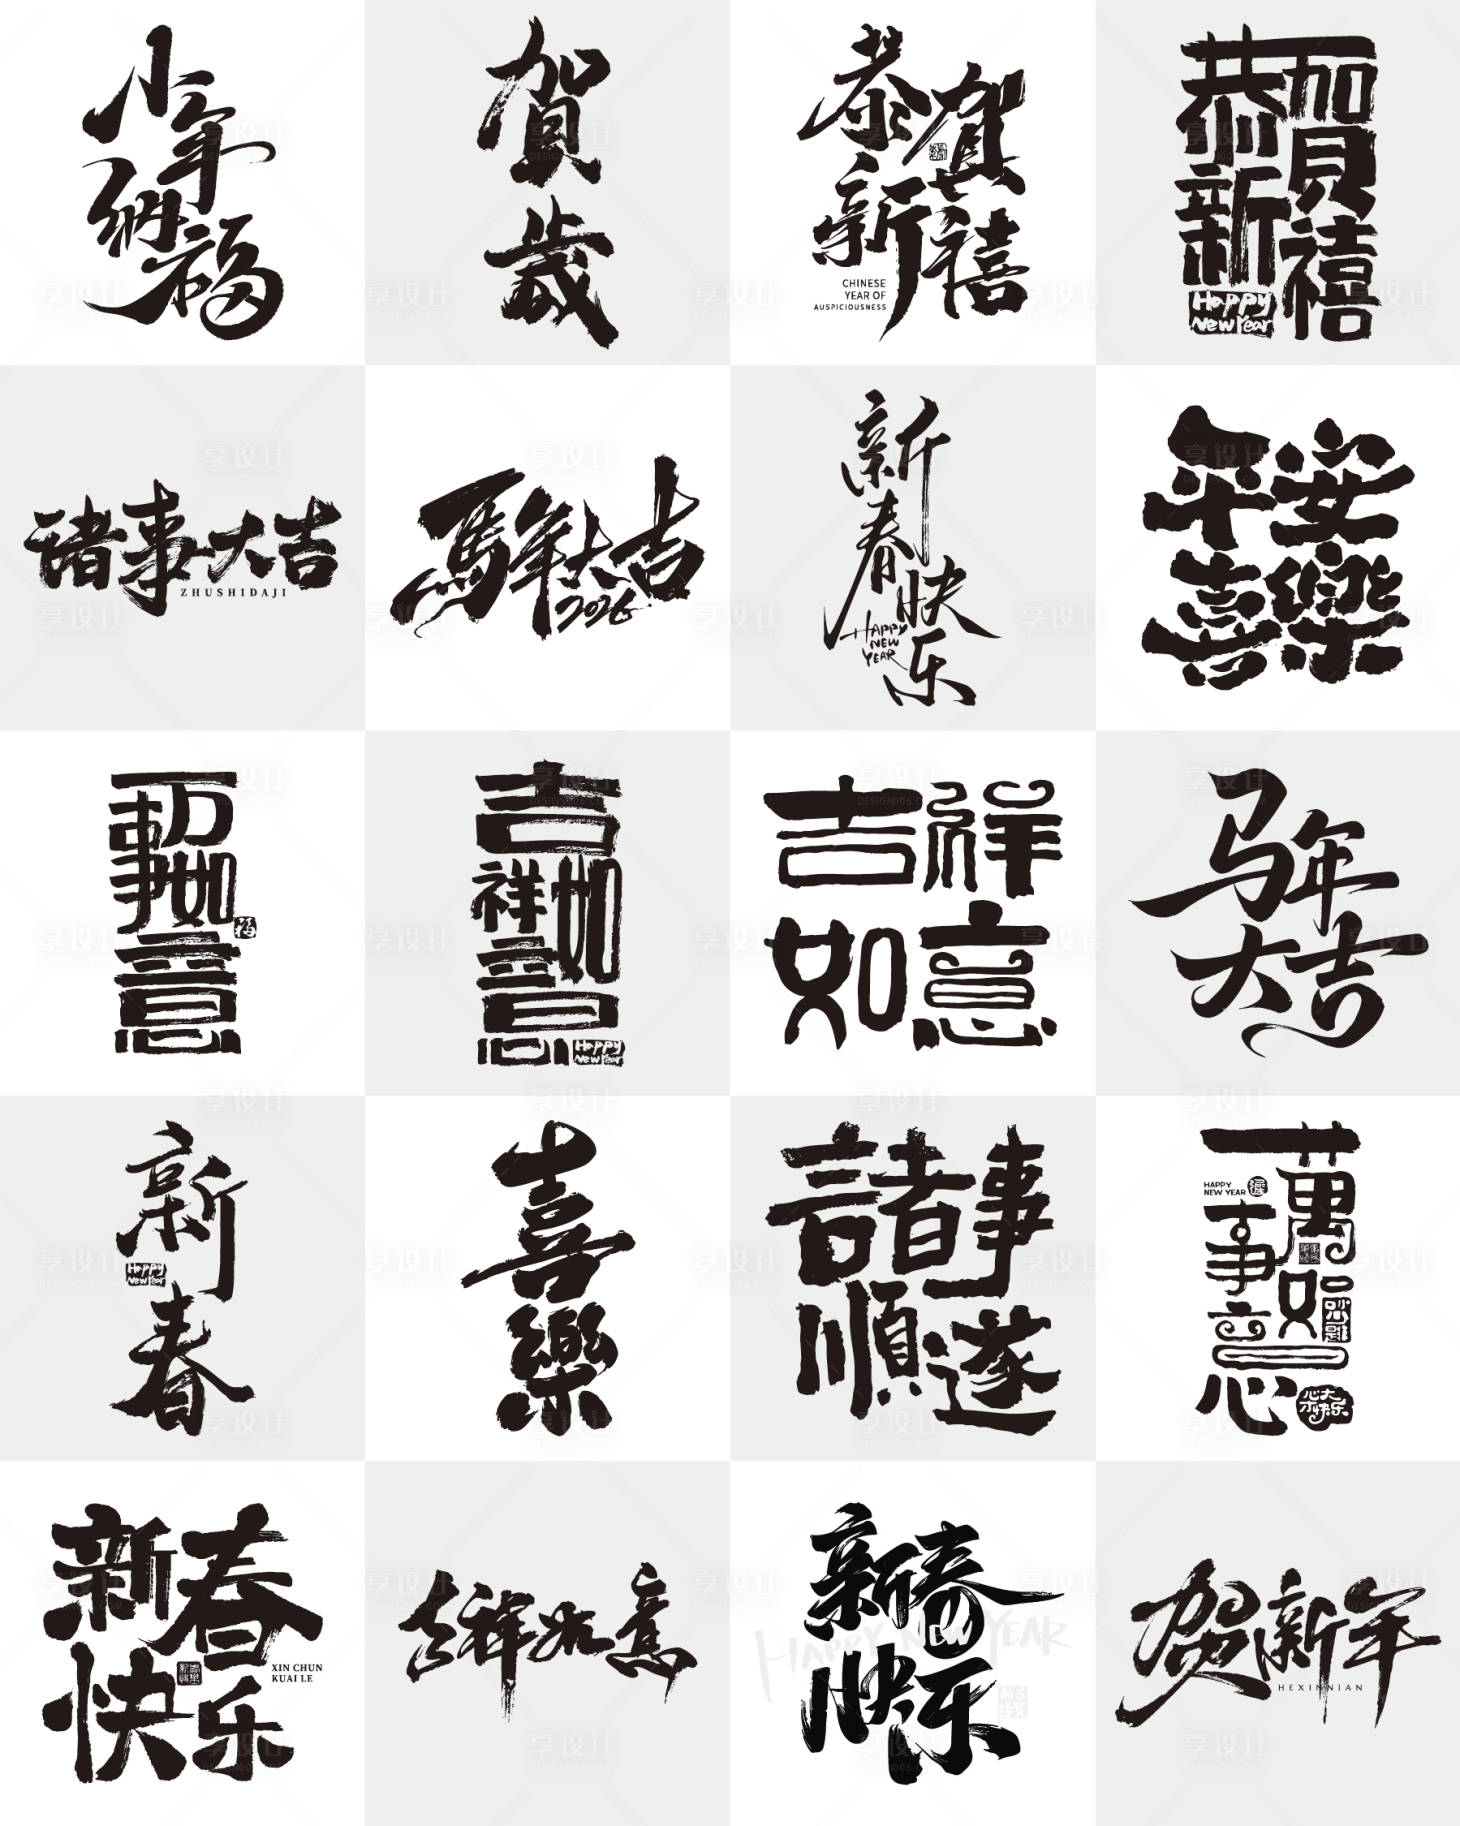 小年纳福
賀歲
恭賀新禧
CHINESE
YEAR OF
AUSPICIOUSNESS
恭賀新禧
Happy
New Year
诸事大吉
ZHUSHIDAJI
馬年大吉
2026
新春快乐
HAPPY
NEW
YEAR
平安
喜樂
万事如意
福
吉祥如意
Happy
New Year
吉祥
如意
马年
大吉
新春
Happy
New Year
喜樂
諸事
順遂
萬事如意
HAPPY
NEW YEAR
新春
快乐
XIN CHUN
KUAI LE
吉祥如意
新春
快乐
HAPPY NEW YEAR
贺新年
HEXINNIAN
享设计
DESIGN006.COM